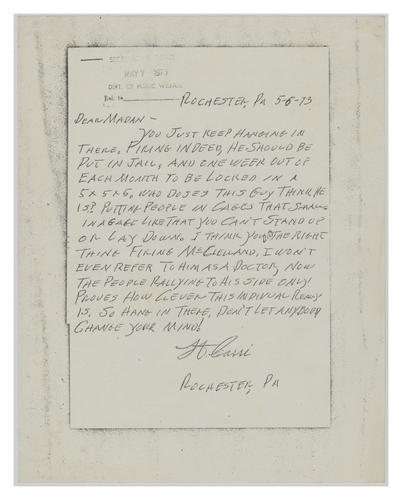 MAY 7 1973
DEPT. OF PUBLIC WELFARE
ROCHESTER, PA 5-6-73
DEAR MADAM -
YOU JUST KEEP HANGING IN
THERE. FIRING INDEED, HE SHOULD BE
PUT IN JAIL, AND ONE WEEK OUT OF
EACH MONTH TO BE LOCKED IN A
5X5X6, WHO DOSES THIS GUY THINK HE
IS? PUTTING PEOPLE IN CAGES THAT SMALL
IN A CAGE LIKE THAT YOU CAN'T STAND UP
OR LAY DOWN. I THINK YOU THE RIGHT
THING FIRING McCLELLAND, I WON'T
EVEN REFER TO HIM AS A DOCTOR, NOW
THE PEOPLE RALLYING TO HIS SIDE ONLY
PROVES HOW CLEVER THIS INDIVUAL REALY
IS. SO HANG IN THERE, DON'T LET ANYBODY
CHANGE YOUR MIND!
ROCHESTER, PA